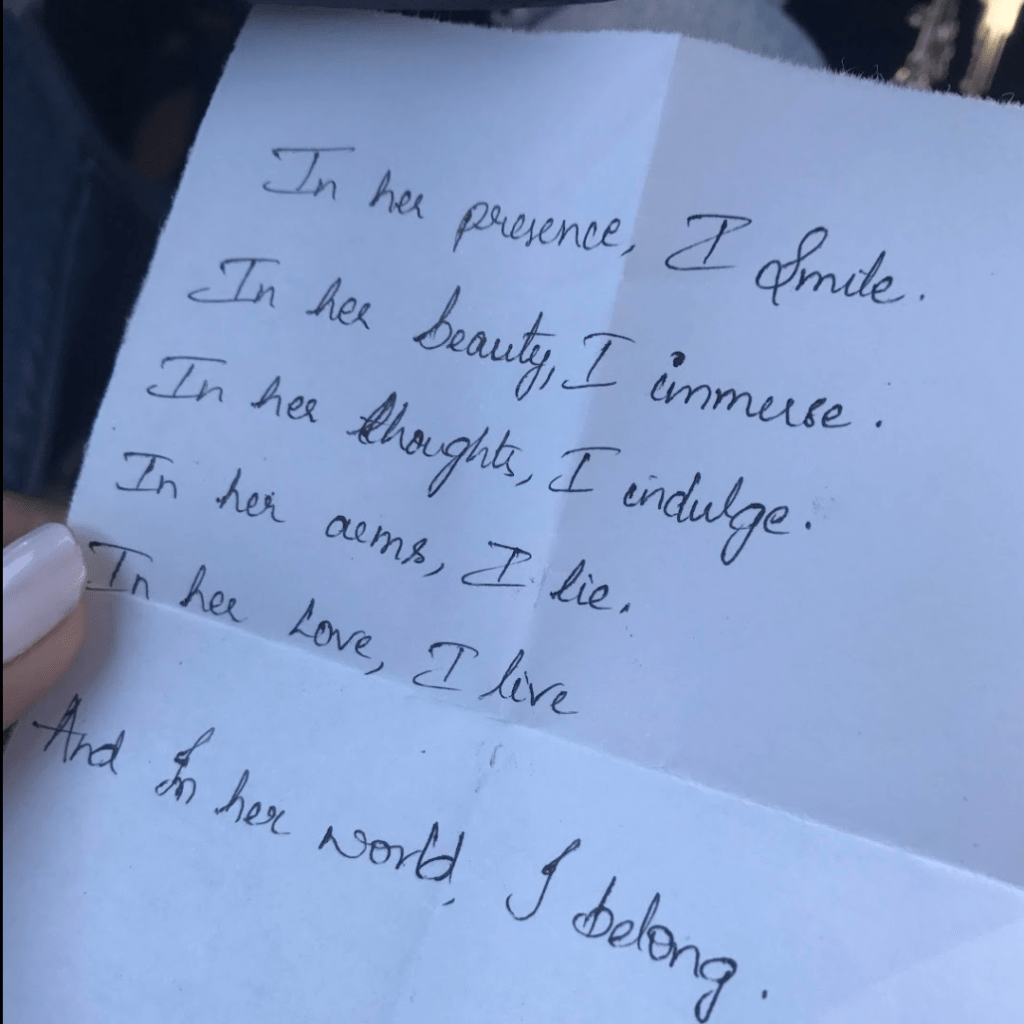 In her presence, I Smile.
In her beauty, I immerse.
In her thoughts, I indulge.
In her arms, I lie.
In her Love, I live
And In her world, I belong.